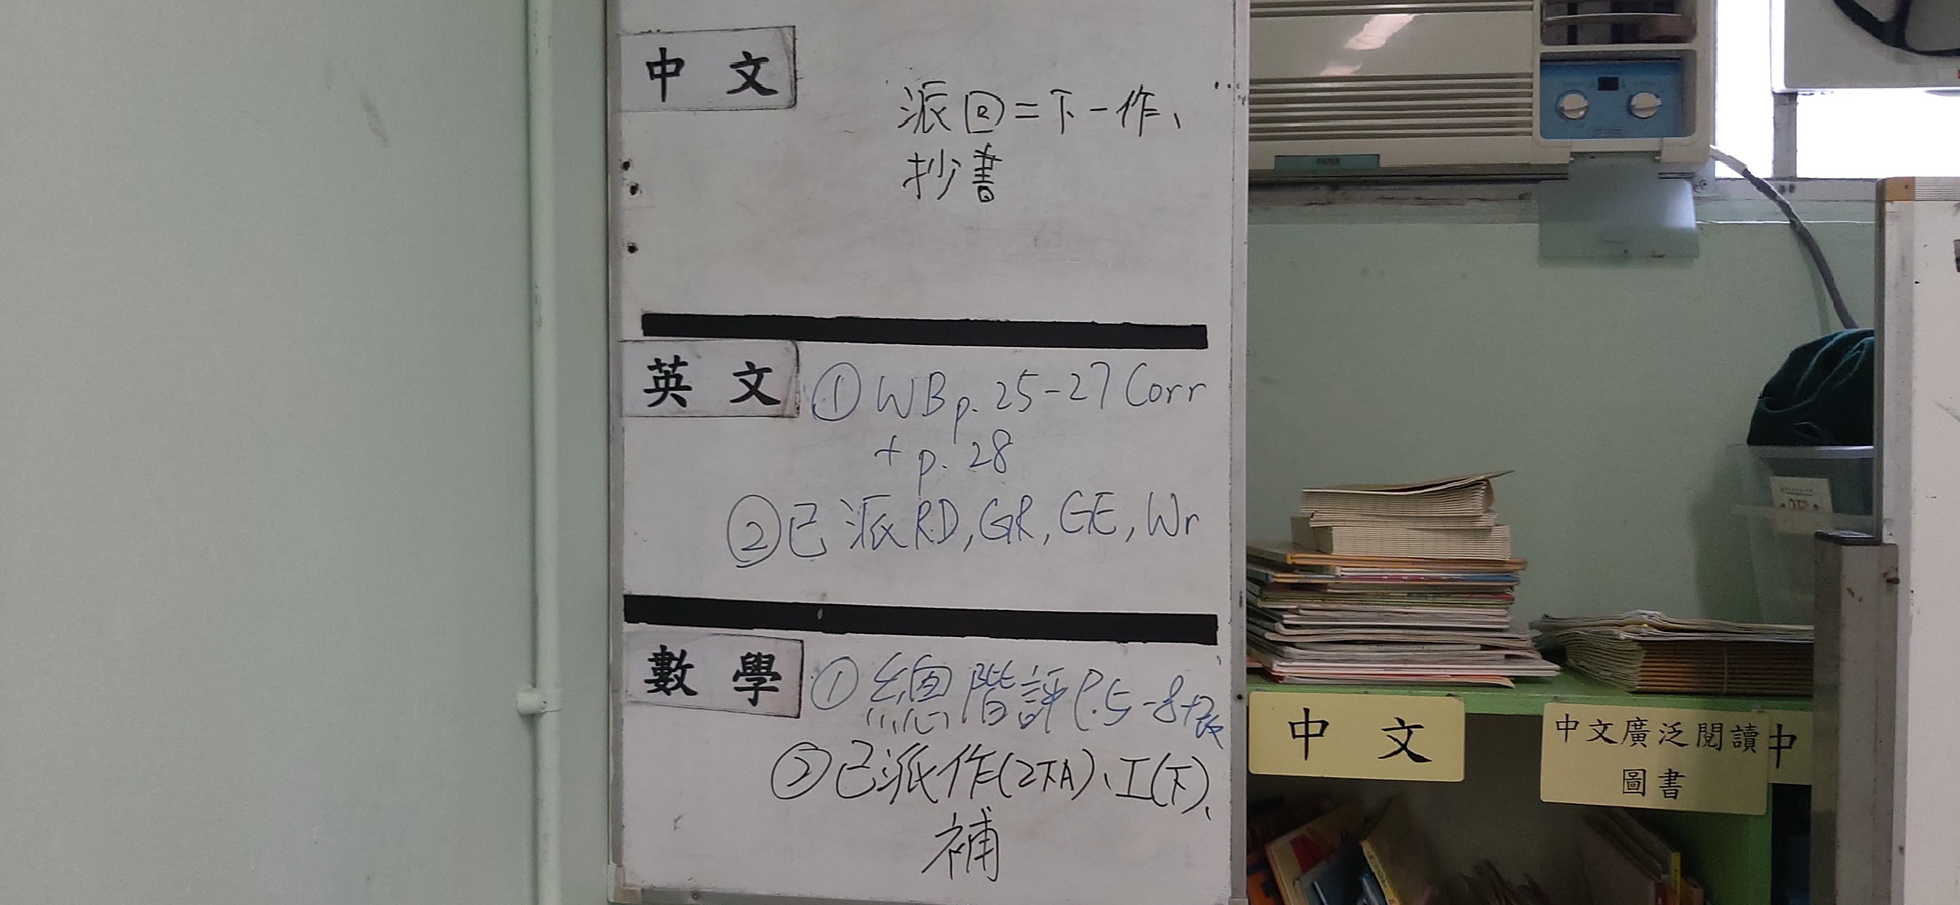 中文
派回=下一作、
抄書
英文 ① WB p. 25-27 Corr
+ p. 28
② 已派 RD, GR, GE, Wr
數學 ① 總階評 P.5-8+改
② 已派作(2下A)、工(下)、
補
中文
中文廣泛閱讀
圖書
中